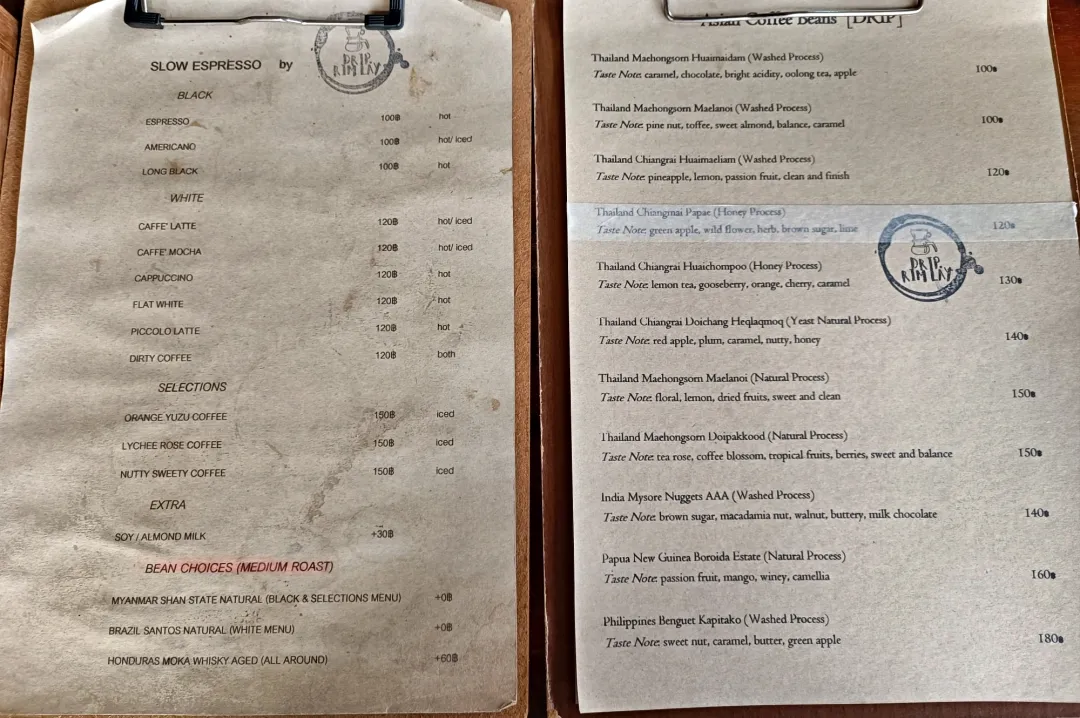 SLOW ESPRESSO by
DRIP
RIM LAY
BLACK
ESPRESSO 100฿ hot
AMERICANO 100฿ hot/ iced
LONG BLACK 100฿ hot
WHITE
CAFFE' LATTE 120฿ hot/ iced
CAFFE' MOCHA 120฿ hot/ iced
CAPPUCCINO 120฿ hot
FLAT WHITE 120฿ hot
PICCOLO LATTE 120฿ hot
DIRTY COFFEE 120฿ both
SELECTIONS
ORANGE YUZU COFFEE 150฿ iced
LYCHEE ROSE COFFEE 150฿ iced
NUTTY SWEETY COFFEE 150฿ iced
EXTRA
SOY / ALMOND MILK +30฿
BEAN CHOICES (MEDIUM ROAST)
MYANMAR SHAN STATE NATURAL (BLACK & SELECTIONS MENU) +0฿
BRAZIL SANTOS NATURAL (WHITE MENU) +0฿
HONDURAS MOKA WHISKY AGED (ALL AROUND) +60฿
Asian Coffee Beans [DRIP]
Thailand Maehongsorn Huaimaidam (Washed Process)
Taste Note: caramel, chocolate, bright acidity, oolong tea, apple 100฿
Thailand Maehongsorn Maelanoi (Washed Process)
Taste Note: pine nut, toffee, sweet almond, balance, caramel 100฿
Thailand Chiangrai Huaimaeliam (Washed Process)
Taste Note: pineapple, lemon, passion fruit, clean and finish 120฿
Thailand Chiangmai Papae (Honey Process)
Taste Note: green apple, wild flower, herb, brown sugar, lime 120฿
DRIP
RIM LAY
Thailand Chiangrai Huaichompoo (Honey Process)
Taste Note: lemon tea, gooseberry, orange, cherry, caramel 130฿
Thailand Chiangrai Doichang Heqlaqmoq (Yeast Natural Process)
Taste Note: red apple, plum, caramel, nutty, honey 140฿
Thailand Maehongsorn Maelanoi (Natural Process)
Taste Note: floral, lemon, dried fruits, sweet and clean 150฿
Thailand Maehongsorn Doipakkood (Natural Process)
Taste Note: tea rose, coffee blossom, tropical fruits, berries, sweet and balance 150฿
India Mysore Nuggets AAA (Washed Process)
Taste Note: brown sugar, macadamia nut, walnut, buttery, milk chocolate 140฿
Papua New Guinea Boroida Estate (Natural Process)
Taste Note: passion fruit, mango, winey, camellia 160฿
Philippines Benguet Kapitako (Washed Process)
Taste Note: sweet nut, caramel, butter, green apple 180฿